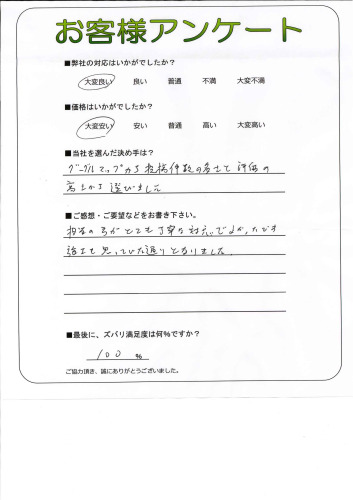 お客様アンケート
■弊社の対応はいかがでしたか?
大変良い 良い 普通 不満 大変不満
■価格はいかがでしたか?
大変安い 安い 普通 高い 大変高い
■当社を選んだ決め手は?
グーグルマップから投稿件数の多さと評価の
高さから選びました
■ご感想・ご要望などをお書き下さい。
担当の方がとても丁寧な対応でよかったです
施工も思っていた通りとなりました。
■最後に、ズバリ満足度は何%ですか?
100 %
ご協力頂き、誠にありがとうございました。